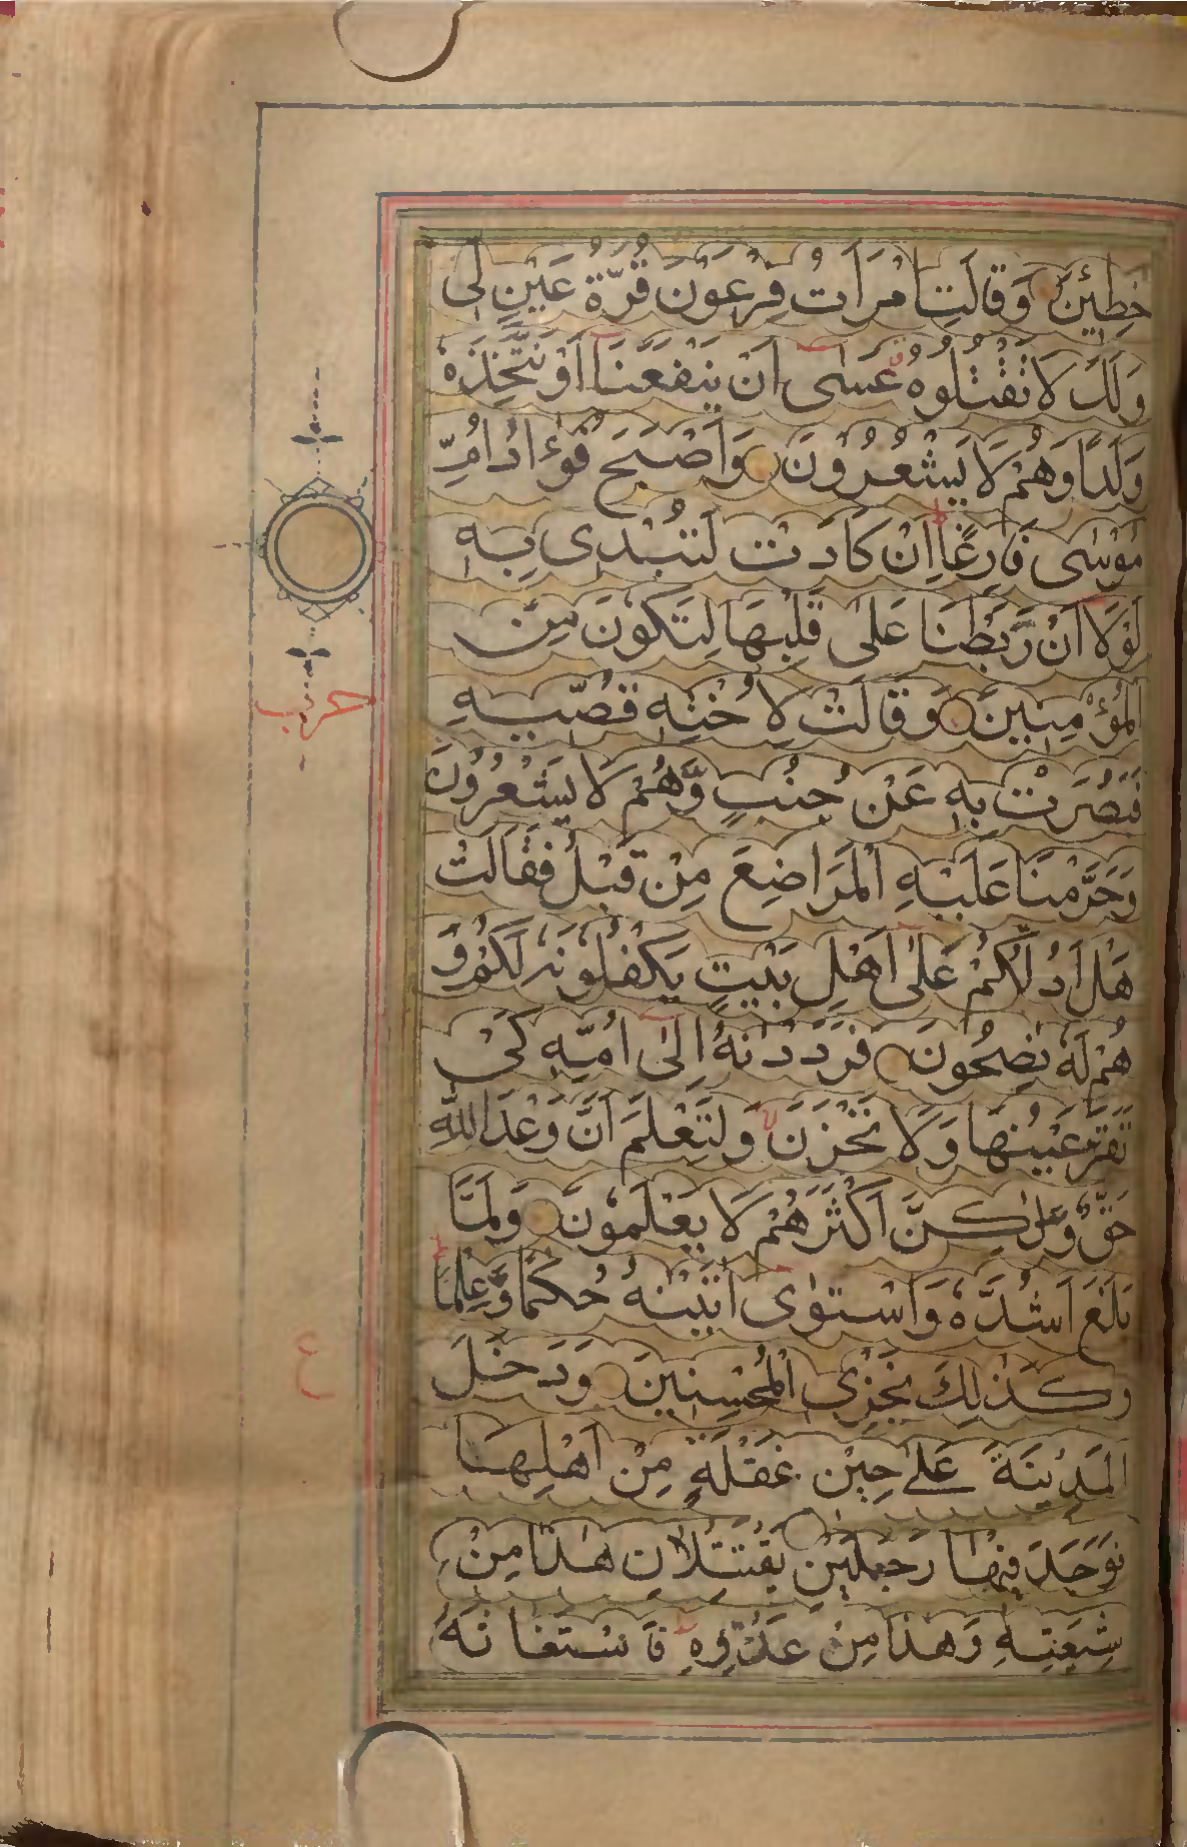 خٰطِئِيْنَ وَقَالَتِ امْرَاَتُ فِرْعَوْنَ قُرَّةُ عَيْنٍ لِّى
وَلَكَ لَا تَقْتُلُوْهُ عَسٰى اَنْ يَنْفَعَنَا اَوْ نَتَّخِذَهٗ
وَلَدًا وَهُمْ لَا يَشْعُرُوْنَ وَاَصْبَحَ فُؤَادُ اُمِّ
مُوْسٰى فَارِغًا اِنْ كَادَتْ لَتُبْدِى بِهٖ
لَوْلَا اَنْ رَّبَطْنَا عَلٰى قَلْبِهَا لِتَكُوْنَ مِنَ
الْمُؤْمِنِيْنَ وَقَالَتْ لِاُخْتِهٖ قُصِّيْهِ
فَبَصُرَتْ بِهٖ عَنْ جُنُبٍ وَّهُمْ لَا يَشْعُرُوْنَ
وَحَرَّمْنَا عَلَيْهِ الْمَرَاضِعَ مِنْ قَبْلُ فَقَالَتْ
هَلْ اَدُلُّكُمْ عَلٰى اَهْلِ بَيْتٍ يَكْفُلُوْنَهٗ لَكُمْ وَ
هُمْ لَهٗ نٰصِحُوْنَ فَرَدَدْنٰهُ اِلٰى اُمِّهٖ كَىْ
تَقَرَّ عَيْنُهَا وَلَا تَحْزَنَ وَلِتَعْلَمَ اَنَّ وَعْدَ اللّٰهِ
حَقٌّ وَّلٰكِنَّ اَكْثَرَهُمْ لَا يَعْلَمُوْنَ وَلَمَّا
بَلَغَ اَشُدَّهٗ وَاسْتَوٰى اٰتَيْنٰهُ حُكْمًا وَّعِلْمًا
وَكَذٰلِكَ نَجْزِى الْمُحْسِنِيْنَ وَدَخَلَ
الْمَدِيْنَةَ عَلٰى حِيْنِ غَفْلَةٍ مِنْ اَهْلِهَا
فَوَجَدَ فِيْهَا رَجُلَيْنِ يَقْتَتِلَانِ هٰذَا مِنْ
شِيْعَتِهٖ وَهٰذَا مِنْ عَدُوِّهٖ فَاسْتَغَاثَهُ
حزب
ع